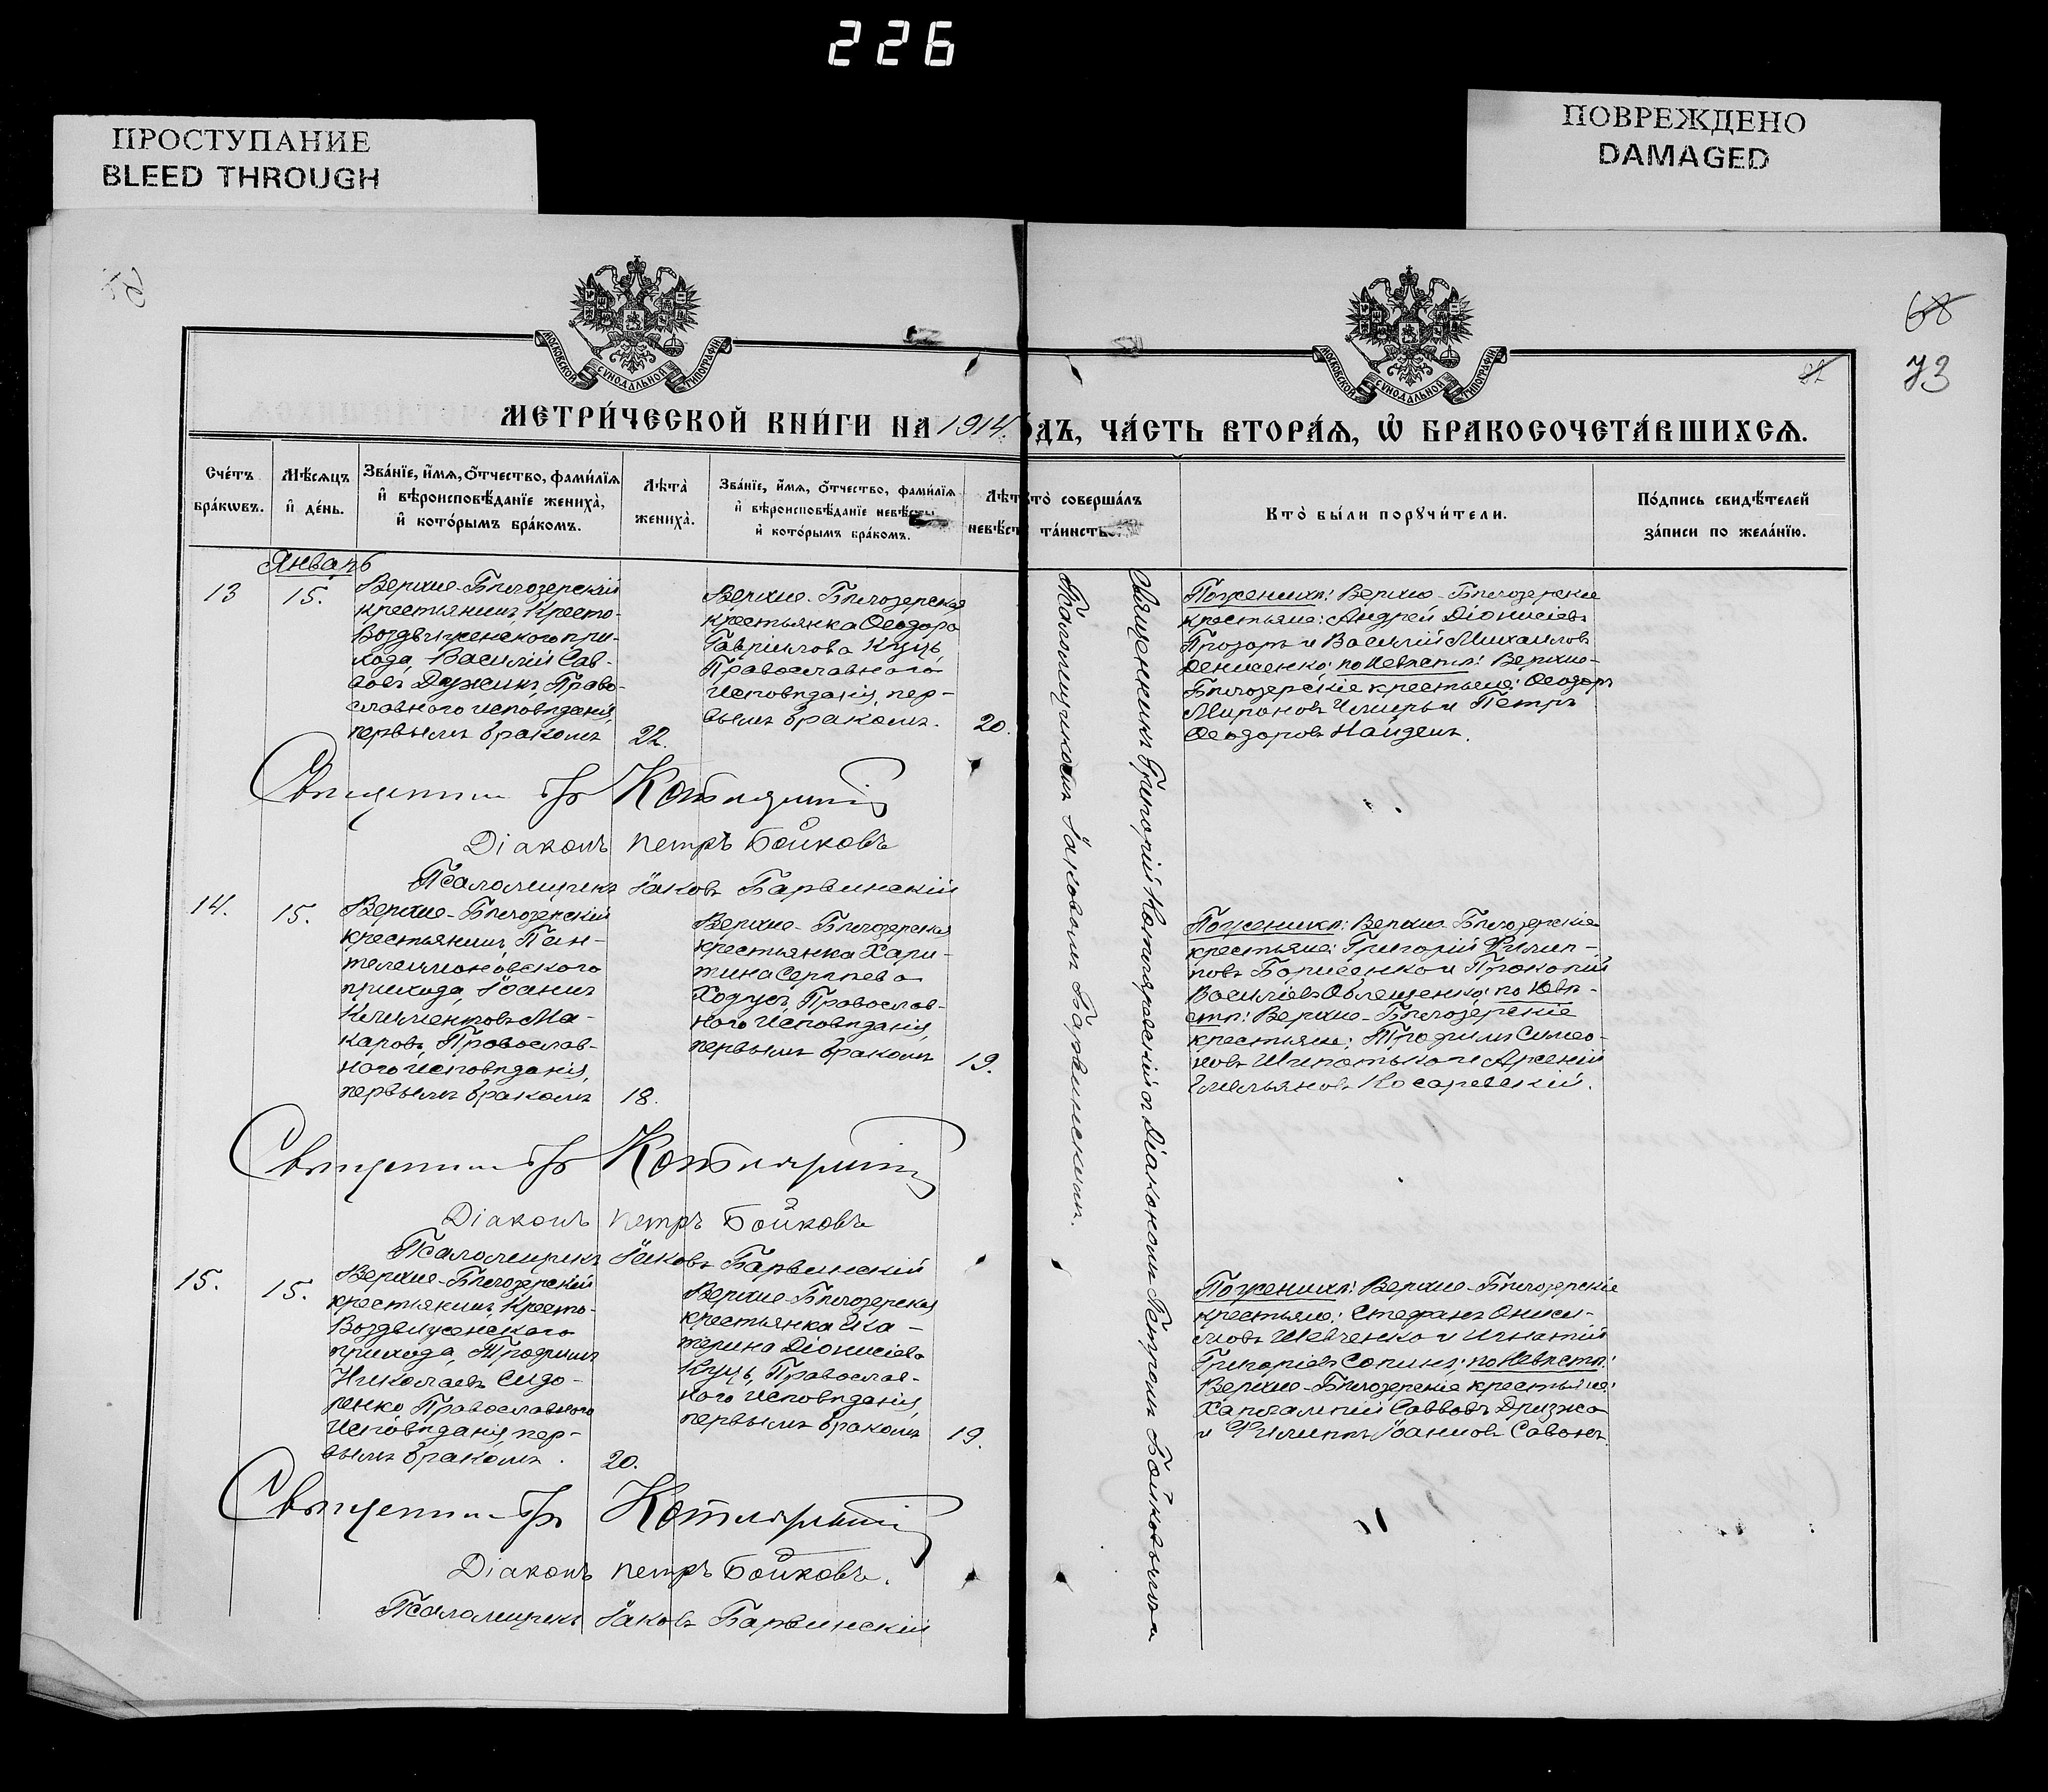 226
ПРОСТУПАНИЕ
BLEED THROUGH
ПОВРЕЖДЕНО
DAMAGED
68
73
МОСКОВСКОЙ СѴНОДАЛЬНОЙ ТИПОГРАФІИ
МОСКОВСКОЙ СѴНОДАЛЬНОЙ ТИПОГРАФІИ
МЕТРИ́ЧЕСКОЙ КНИ́ГИ НА 1914 ОДЪ, ЧА́СТЬ ВТОРА́Ѧ, Ѡ҆ БРАКОСОЧЕТА́ВШИХСѦ.
Сче́тъ
бра́кѡвъ.
Мѣ́сѧцъ
и҆ де́нь.
Зва́нїе, и҆́мѧ, ѻ҆́тчество, фами́лїѧ
и҆ вѣроисповѣ́данїе жениха̀,
и҆ кото́рымъ бра́комъ.
Лѣта̀
жениха̀.
Зва́нїе, и҆́мѧ, ѻ҆́тчество, фами́лїѧ
и҆ вѣроисповѣ́данїе невѣ́сты
и҆ кото́рымъ бра́комъ.
Лѣт
невѣ́ст
то̀ соверша́лъ
та́инство.
Кто̀ бы́ли порꙋчи́тели.
По́дпись свидѣ́телей
за́писи по жела́нїю.
Январь
13
15.
Верхне-Бѣлозерскій
крестьянинъ, Кресто-
Воздвиженскаго при-
хода, Василій Сав-
вовъ Дужикъ, Право-
славнаго исповѣданія,
первымъ бракомъ
22.
Верхне-Бѣлозерская
крестьянка Ѳеодора
Гавріилова Куць,
Православнаго
исповѣданія, пер-
вымъ бракомъ.
20.
Священникомъ Григорій Котляревскій съ Діакономъ Петромъ Бойковымъ и
Псаломщикомъ Іаковомъ Барвинскимъ.
По женихѣ: Верхне-Бѣлозерскіе
крестьяне: Андрей Діонисіевъ
Прозоръ и Василій Михаиловъ
Денисенко; по невѣстѣ: Верхне-
Бѣлозерскіе крестьяне: Ѳеодоръ
Мироновъ и Петръ
Ѳеодоровъ Найденъ.
Священникъ Гр Котляревскій
Діаконъ Петръ Бойковъ
Псаломщикъ Іаковъ Барвинскій
14.
15.
Верхне-Бѣлозерскій
крестьянинъ, Пан-
телеимоновскаго
прихода, Іоаннъ
Климентовъ Ма-
каровъ, Православ-
наго исповѣданія,
первымъ бракомъ
18.
Верхне-Бѣлозерская
крестьянка Хари-
тина Сергѣева
Ходусъ, Православ-
наго исповѣданія,
первымъ бракомъ
19.
По женихѣ: Верхне-Бѣлозерскіе
крестьяне: Григорій Филип-
повъ Борисенко и Прокопій
Василіевъ Облещенко; по невѣ-
стѣ: Верхне-Бѣлозерскіе
крестьяне: Трофимъ Симео-
новъ Игнатько и Арсеній
Емельяновъ Косаревскій.
Священникъ Гр Котляревскій
Діаконъ Петръ Бойковъ
Псаломщикъ Іаковъ Барвинскій
15.
15.
Верхне-Бѣлозерскій
крестьянинъ, Кресто-
Воздвиженскаго
прихода, Трофимъ
Николаевъ Сидо-
ренко, Православнаго
исповѣданія, пер-
вымъ бракомъ.
20.
Верхне-Бѣлозерская
крестьянка Ека-
терина Діонисіева
Куць, Православ-
наго исповѣданія,
первымъ бракомъ
19.
По женихѣ: Верхне-Бѣлозерскіе
крестьяне: Стефанъ Ониси-
мовъ Шевченко и Игнатій
Григоріевъ Сопинъ; по невѣстѣ:
Верхне-Бѣлозерскіе крестьяне:
Харлампій Саввовъ Дризжа
и Филиппъ Іоанновъ Савонъ.
Священникъ Гр Котляревскій
Діаконъ Петръ Бойковъ.
Псаломщикъ Іаковъ Барвинскій